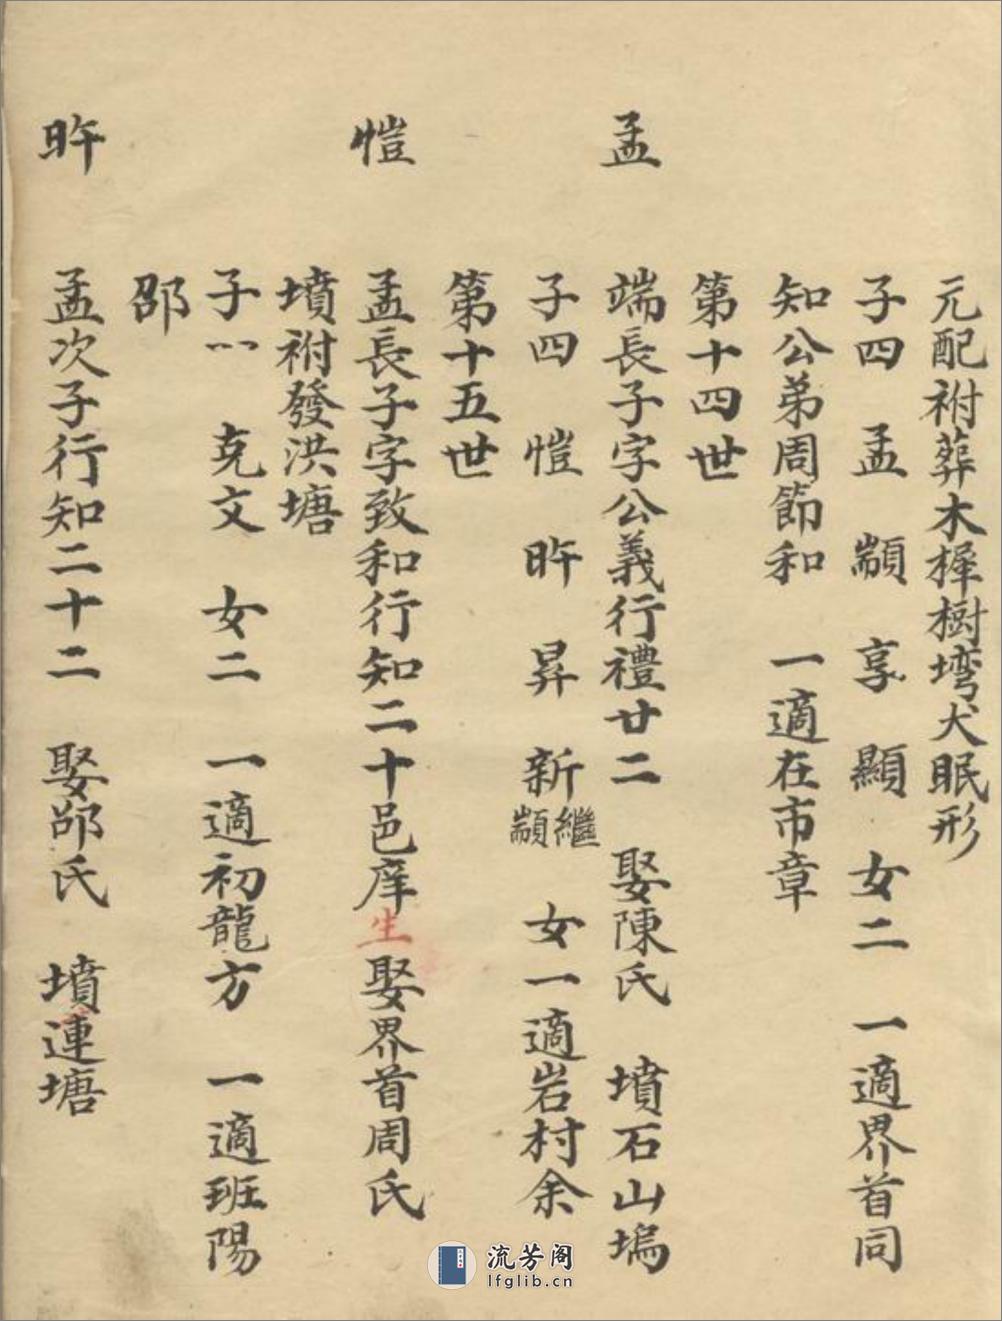 元配祔葬木樨樹塆犬眠形
子四 孟 顓 享 顯 女二 一適界首同
知公弟周節和 一適在市章
第十四世
孟 端長子字公義行禮廿二 娶陳氏 墳石山塢
子四 愷 旿 昇 新繼顓 女一適岩村余
第十五世
愷 孟長子字致和行知二十邑庠生娶界首周氏
墳祔發洪塘
子一 克文 女二 一適初龍方 一適班陽
邵
旿 孟次子行知二十二 娶邵氏 墳連塘
流芳阁
lfglib.cn